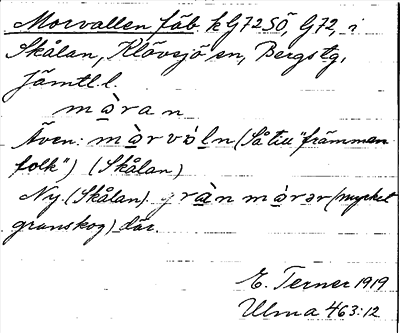 Morvallen fäb. k G72SÖ, G72, i
Skålan, Klövsjö sn, Bergs tg,
Jämtl. l.
mòran
Även: mòrvòln (Så till "främman
folk") (Skålan)
Ny. (Skålan). gràn mórər (mycket
granskog) där.
E. Terner 1919
Ulma 463:12